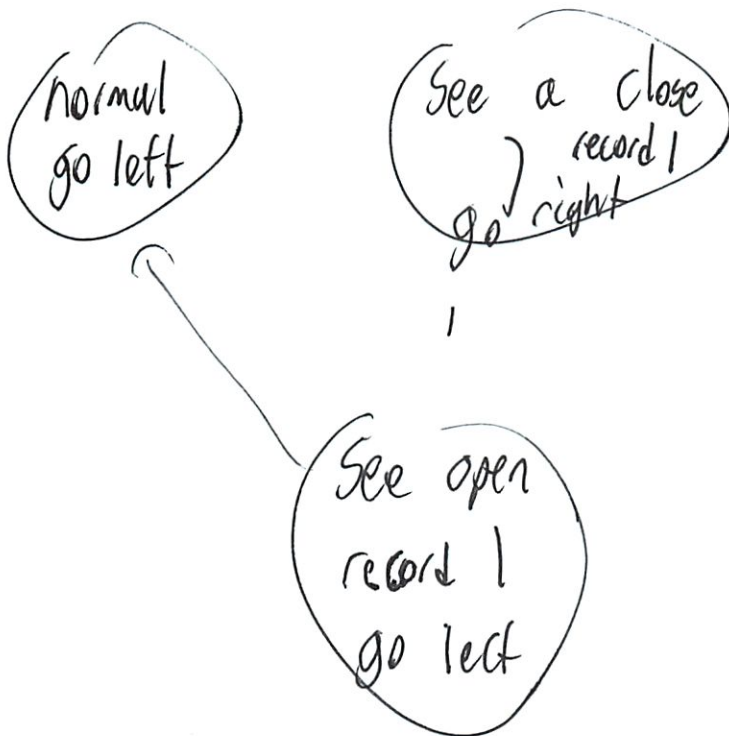 normal
go left
See a close
record 1
go right
1
See open
record 1
go left